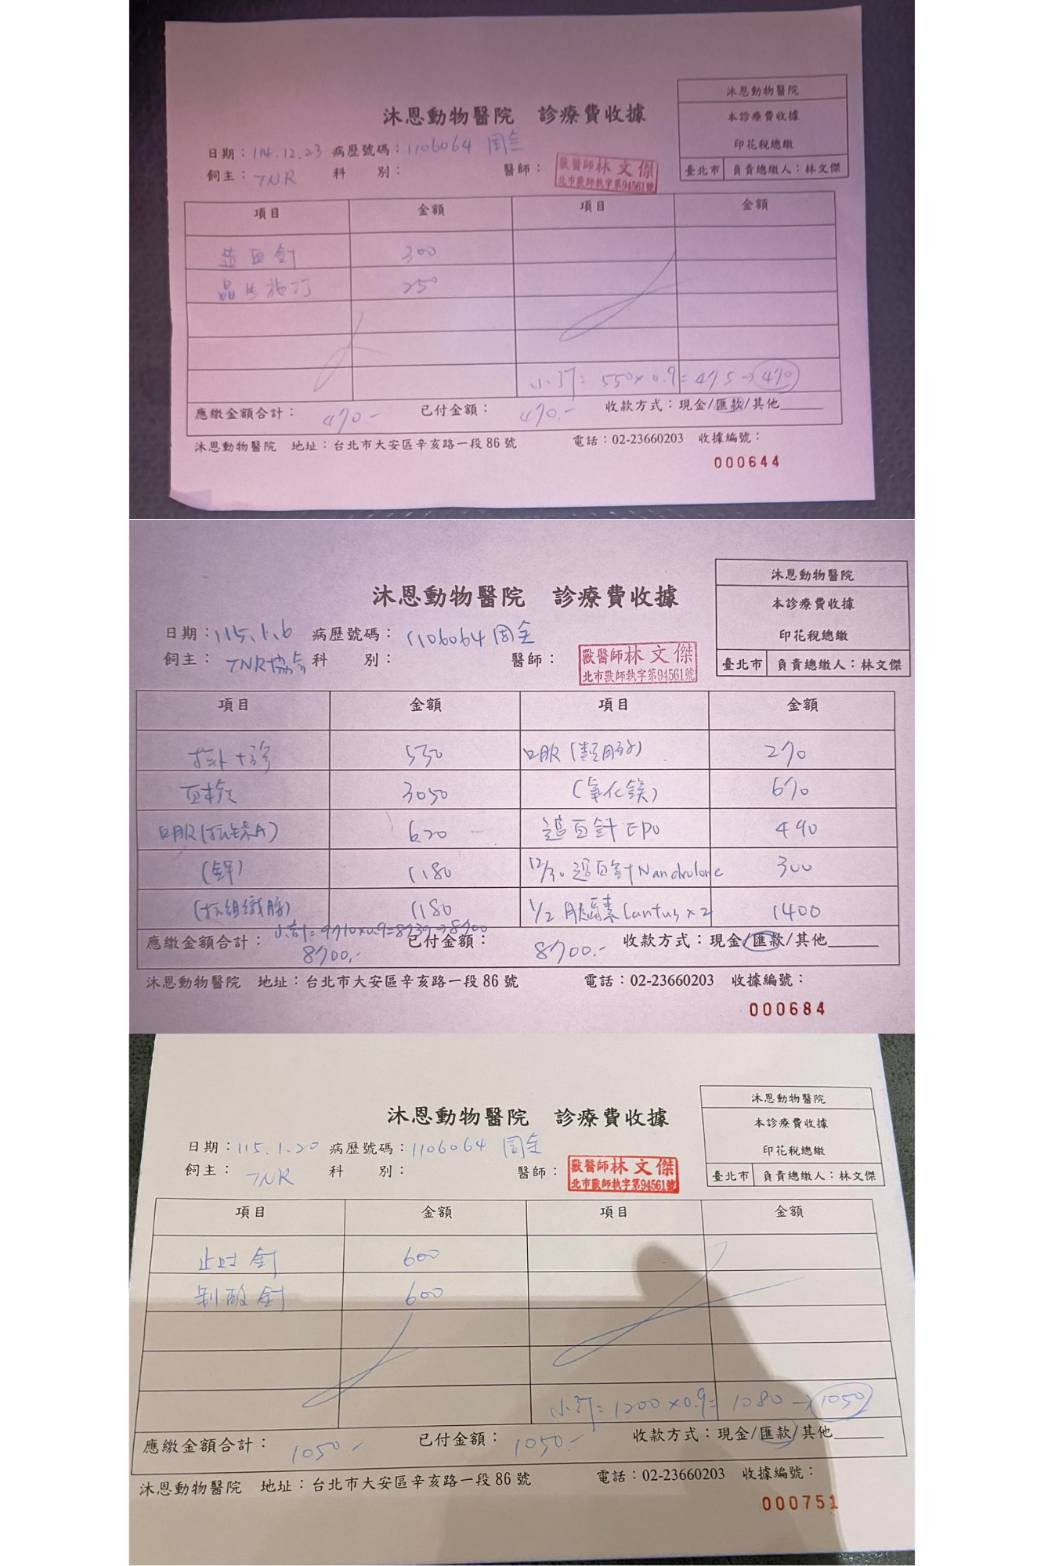 沐恩動物醫院 診療費收據
沐恩動物醫院
本診療費收據
印花稅總繳
臺北市 負責總繳人：林文傑
日期：114.12.23 病歷號碼：1106064
飼主：TNR 科 別： 醫師： 獸醫師林文傑
北市獸師執字第94561號
項目 金額 項目 金額
造血針 300
晶片施打 250
小計=550×0.9=495→470
應繳金額合計：470.- 已付金額：470.- 收款方式：現金/匯款/其他
沐恩動物醫院 地址：台北市大安區辛亥路一段86號 電話：02-23660203 收據編號：
000644
沐恩動物醫院 診療費收據
沐恩動物醫院
本診療費收據
印花稅總繳
臺北市 負責總繳人：林文傑
日期：115.1.6 病歷號碼：1106064
飼主：TNR協會 科 別： 醫師： 獸醫師林文傑
北市獸師執字第94561號
項目 金額 項目 金額
掛+診 550 口服 270
血檢 3050 (氧化鎂) 670
口服 620 造血針EPO 490
1180 12/30 造血針Nandrolone 300
1180 1/2 胰島素Lantus×2 1400
小計=9710×0.9=8739→8700
應繳金額合計：8700.- 已付金額：8700.- 收款方式：現金/匯款/其他
沐恩動物醫院 地址：台北市大安區辛亥路一段86號 電話：02-23660203 收據編號：
000684
沐恩動物醫院 診療費收據
沐恩動物醫院
本診療費收據
印花稅總繳
臺北市 負責總繳人：林文傑
日期：115.1.20 病歷號碼：1106064
飼主：TNR 科 別： 醫師： 獸醫師林文傑
北市獸師執字第94561號
項目 金額 項目 金額
止吐針 600
制酸針 600
小計=1200×0.9=1080→1050
應繳金額合計：1050.- 已付金額：1050.- 收款方式：現金/匯款/其他
沐恩動物醫院 地址：台北市大安區辛亥路一段86號 電話：02-23660203 收據編號：
000751